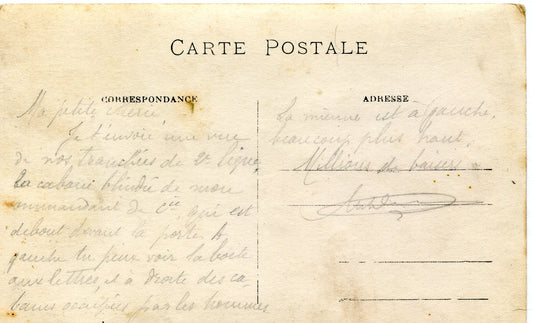 CARTE POSTALE
CORRESPONDANCE
Ma petite chérie,
Je t'envoie une vue
de nos tranchées de 2e ligne
La cabane blindée de mon
commandant de Cie qui est
debout devant la porte à
gauche tu peux voir la boîte
aux lettres, et à droite des ca
banes occupées par les hommes
ADRESSE
La mienne est à gauche,
beaucoup plus haut,
Millions de baisers